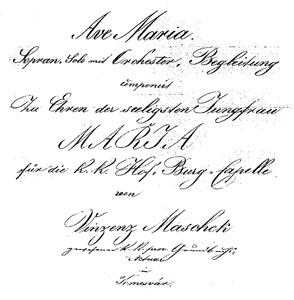 Ave Maria.
Sopran, Solo mit Orchester, Begleitung
componirt
Zu Ehren der seeligsten Jungfrau
MARIA
für die k. k. Hof, Burg-Capelle
von
Vinzenz Maschek
k. k.
Actuar
Temesvár.